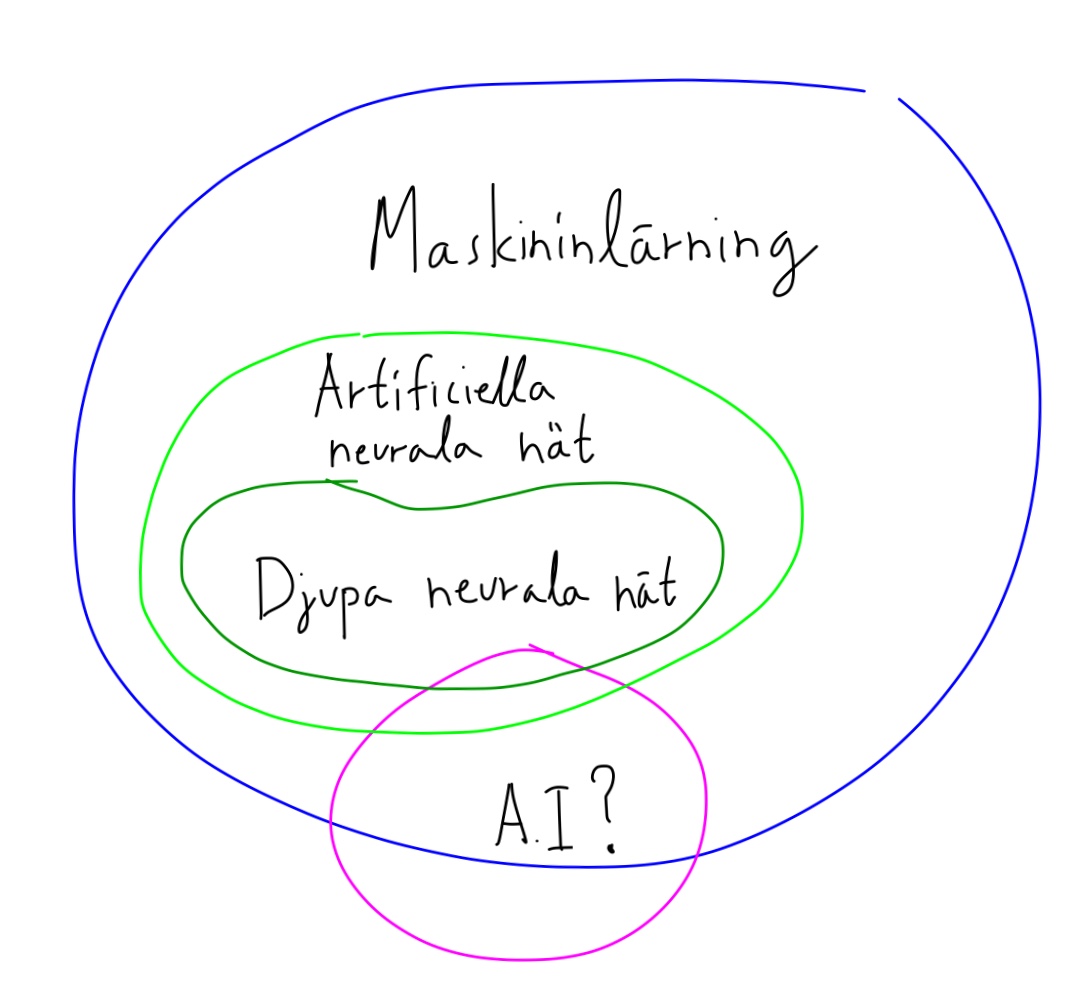 Maskininlärning
Artificiella
neurala nät
Djupa neurala nät
A.I?